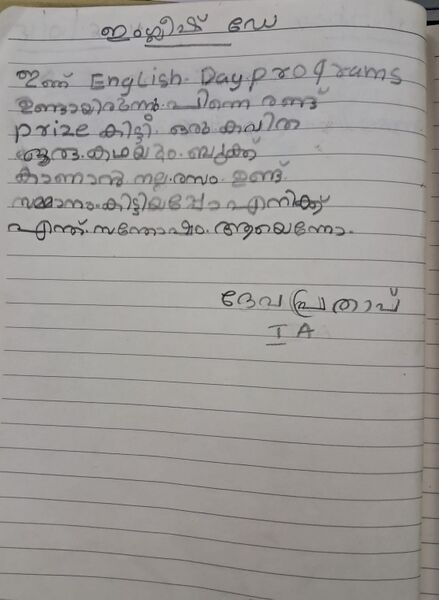 ഇംഗ്ലീഷ് ഡേ
ഇന്ന് English Day programs
ഉണ്ടായിരുന്നു. പിന്നെ രണ്ട്
prize കിട്ടി. ഒരു കവിത
ഒരു കഥയും. ബുക്ക്
കാണാൻ നല്ല. രസം. ഉണ്ട്.
സമ്മാനം. കിട്ടിയപ്പോ എനിക്ക്
എന്ത്. സന്തോഷം. ആയെന്നോ.
ദേവപ്രതാപ്
I A